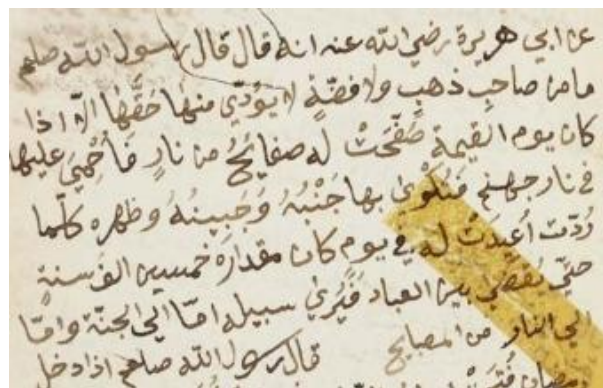 عن ابي هريرة رضي الله عنه انه قال قال رسول الله صلعم
ما من صاحبِ ذهبٍ ولا فضّةٍ لا يؤدّي منها حَقَّها الّا اذا
كان يوم القيمة صُفِّحَتْ له صفايحُ من نارٍ فَأُحْمِيَ عليها
في نار جهنم فتُكْوَي بها جَنْبُهُ وَجَبينُهُ وظهره كلّما
رُدّت أُعِيدَتْ له في يوم كان مقداره خمسين الف سنةٍ
حتّي يُقضَي بين العباد فَيُرَي سبيله امّا الي الجنّة وامّا
الي النار من المصابيح قال رسول الله صلعم اذا دخل
رمضان فُتِحَتْ